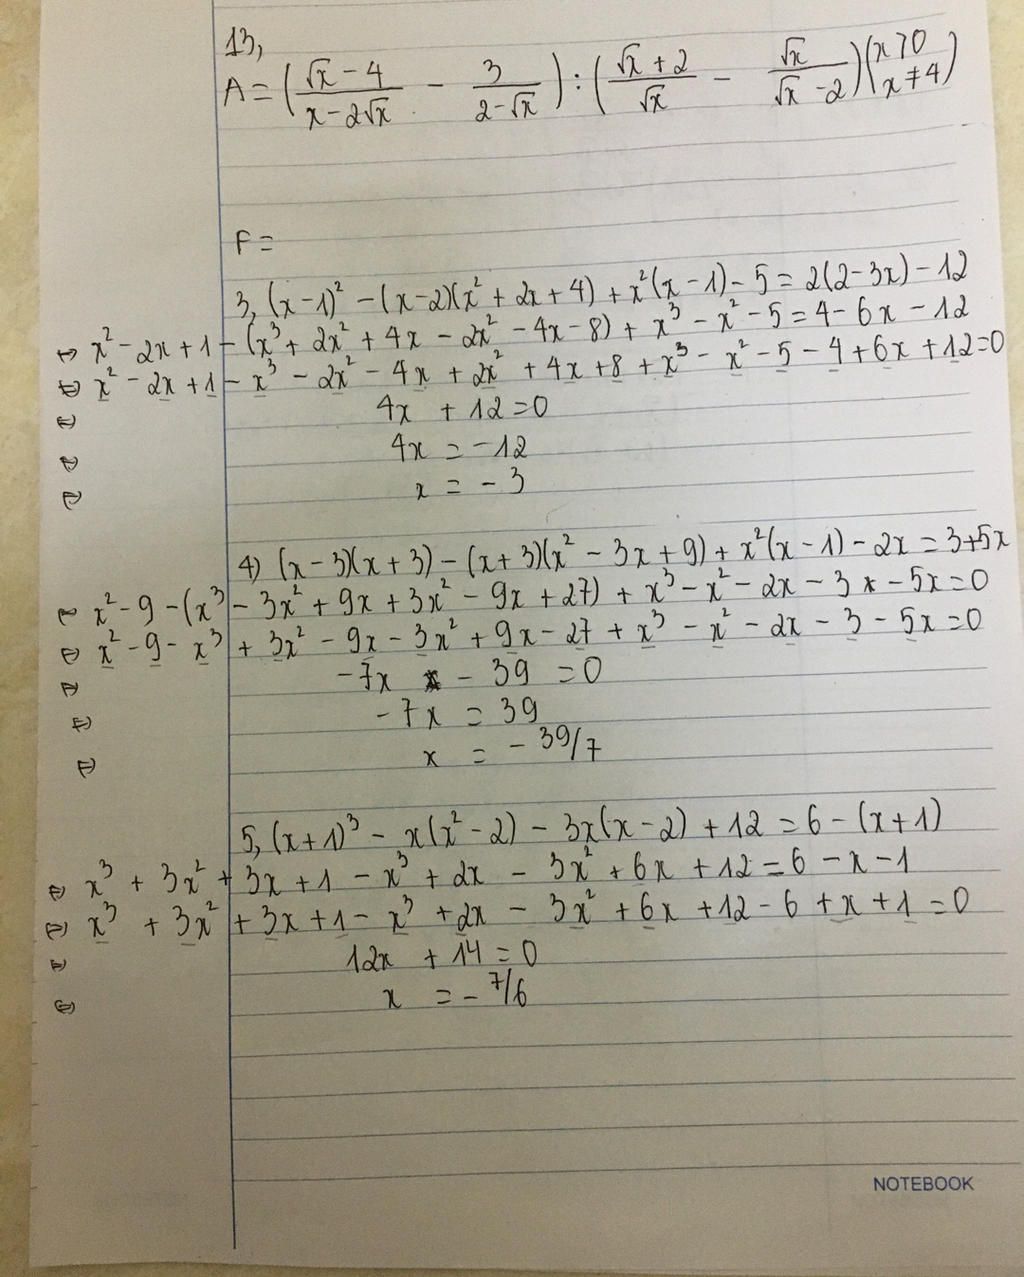 13,
A = (√x - 4 / x - 2√x - 3 / 2 - √x) : (√x + 2 / √x - √x / √x - 2) (x > 0 x ≠ 4)
F =
3, (x - 1)² - (x - 2)(x² + 2x + 4) + x²(x - 1) - 5 = 2(2 - 3x) - 12
⇔ x² - 2x + 1 - (x³ + 2x² + 4x - 2x² - 4x - 8) + x³ - x² - 5 = 4 - 6x - 12
⇔ x² - 2x + 1 - x³ - 2x² - 4x + 2x² + 4x + 8 + x³ - x² - 5 - 4 + 6x + 12 = 0
⇔ 4x + 12 = 0
⇔ 4x = -12
⇔ x = -3
4) (x - 3)(x + 3) - (x + 3)(x² - 3x + 9) + x²(x - 1) - 2x = 3 + 5x
⇔ x² - 9 - (x³ - 3x² + 9x + 3x² - 9x + 27) + x³ - x² - 2x - 3 - 5x = 0
⇔ x² - 9 - x³ + 3x² - 9x - 3x² + 9x - 27 + x³ - x² - 2x - 3 - 5x = 0
⇔ -7x - 39 = 0
⇔ -7x = 39
⇔ x = - 39/7
5, (x + 1)³ - x(x² - 2) - 3x(x - 2) + 12 = 6 - (x + 1)
⇔ x³ + 3x² + 3x + 1 - x³ + 2x - 3x² + 6x + 12 = 6 - x - 1
⇔ x³ + 3x² + 3x + 1 - x³ + 2x - 3x² + 6x + 12 - 6 + x + 1 = 0
⇔ 12x + 14 = 0
⇔ x = - 7/6
NOTEBOOK